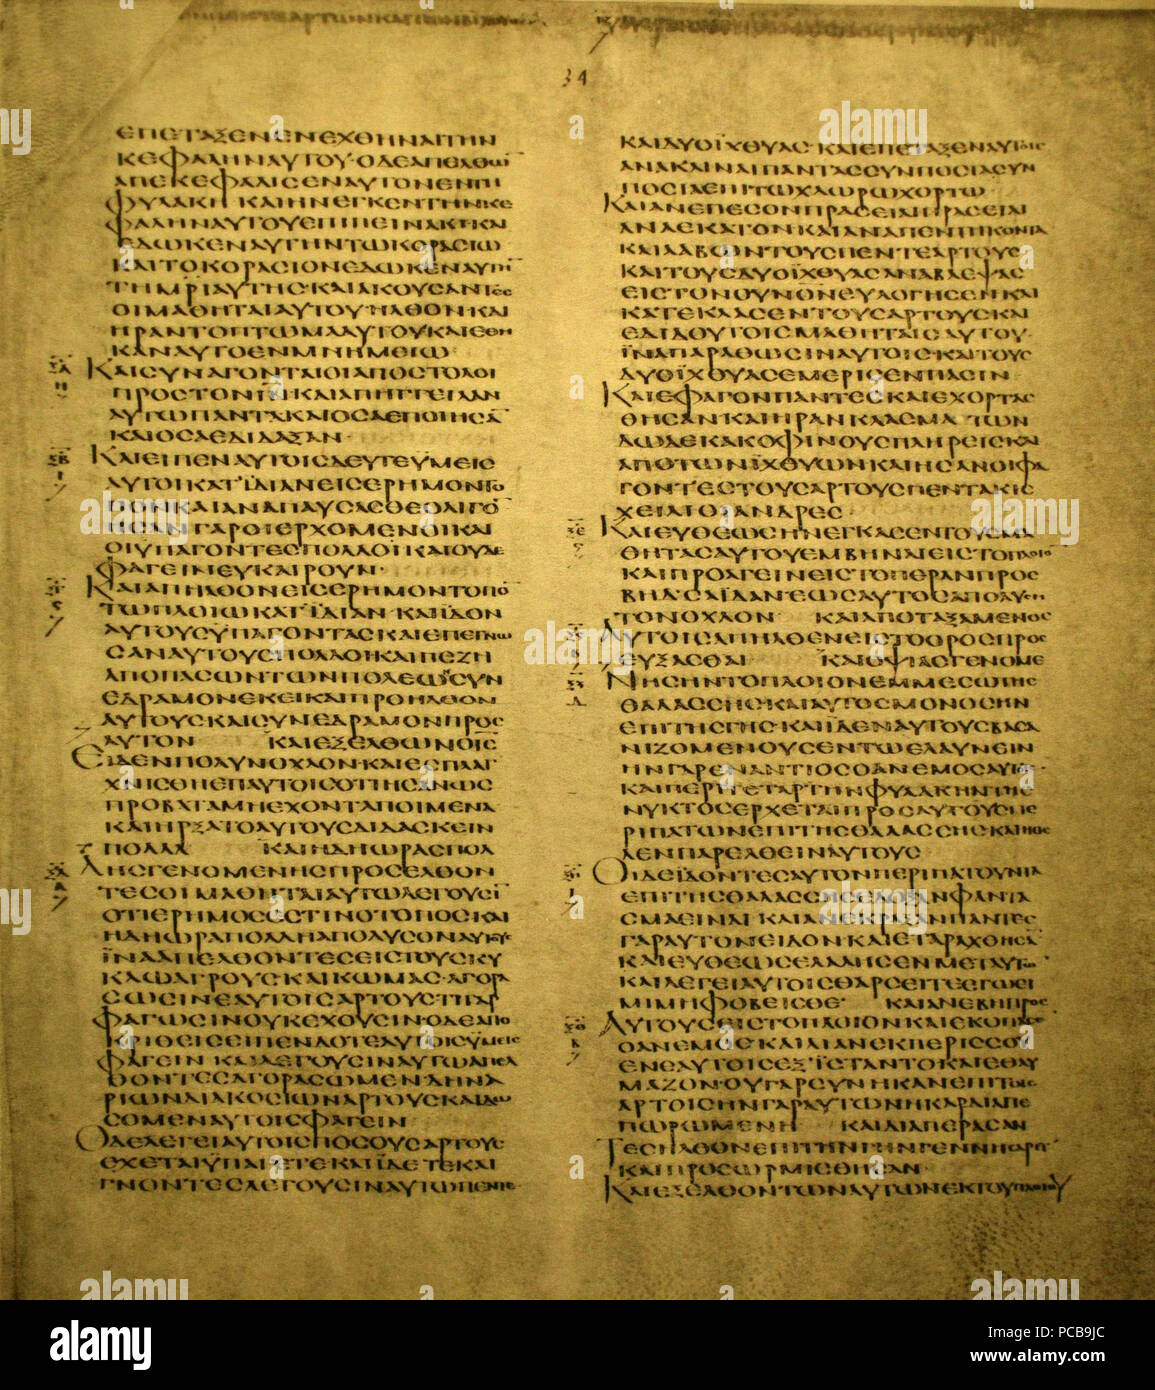 34
ΕΠΕΤΑΞΕΝΕΝΕΧΘΗΝΑΙΤΗΝ
ΚΕΦΑΛΗΝΑΥΤΟΥ·ΟΔΕΑΠΕΛΘΩ̅
ΑΠΕΚΕΦΑΛΙΣΕΝΑΥΤΟΝΕΝΤΗ
ΦΥΛΑΚΗ ΚΑΙΗΝΕΓΚΕΝΤΗΝΚΕ
ΦΑΛΗΝΑΥΤΟΥΕΠΙΠΙΝΑΚΙΚΑΙ
ΕΔΩΚΕΝΑΥΤΗΝΤΩΚΟΡΑΣΙΩ
ΚΑΙΤΟΚΟΡΑΣΙΟΝΕΔΩΚΕΝΑΥΤΗ̅
ΤΗΜΡΙΑΥΤΗΣ·ΚΑΙΑΚΟΥΣΑΝΤΕΣ
ΟΙΜΑΘΗΤΑΙΑΥΤΟΥ·ΗΛΘΟΝΚΑΙ
ΗΡΑΝΤΟΠΤΩΜΑΑΥΤΟΥΚΑΙΕΘΗ
ΚΑΝΑΥΤΟΕΝΜΝΗΜΕΙΩ·
ΚΑΙΣΥΝΑΓΟΝΤΑΙΟΙΑΠΟΣΤΟΛΟΙ
ΠΡΟΣΤΟΝΙΝ̅ΚΑΙΑΠΗΓΓΕΙΛΑΝ
ΑΥΤΩΠΑΝΤΑΚΑΙΟΣΑΕΠΟΙΗΣΑ̅
ΚΑΙΟΣΑΕΔΙΔΑΞΑΝ·
ΚΑΙΕΙΠΕΝΑΥΤΟΙΣΔΕΥΤΕΥΜΕΙΣ
ΑΥΤΟΙΚΑΤΪΔΙΑΝΕΙΣΕΡΗΜΟΝΤΟ
ΠΟΝΚΑΙΑΝΑΠΑΥΣΑΣΘΕΟΛΙΓΟ̅
ΗΣΑΝΓΑΡΟΙΕΡΧΟΜΕΝΟΙΚΑΙ
ΟΙΫΠΑΓΟΝΤΕΣΠΟΛΛΟΙΚΑΙΟΥΔΕ
ΦΑΓΕΙΝΕΥΚΑΙΡΟΥΝ·
ΚΑΙΑΠΗΛΘΟΝΕΙΣΕΡΗΜΟΝΤΟΠΟ̅
ΤΩΠΛΟΙΩΚΑΤΪΔΙΑΝ·ΚΑΙΪΔΟΝ
ΑΥΤΟΥΣΫΠΑΓΟΝΤΑΣΚΑΙΕΠΕΓΝΩ
ΣΑΝΑΥΤΟΥΣΠΟΛΛΟΙ·ΚΑΙΠΕΖΗ
ΑΠΟΠΑΣΩΝΤΩΝΠΟΛΕΩΝΣΥΝ
ΕΔΡΑΜΟΝΕΚΕΙΚΑΙΠΡΟΗΛΘΟΝ
ΑΥΤΟΥΣΚΑΙΣΥΝΕΔΡΑΜΟΝΠΡΟΣ
ΑΥΤΟΝ ΚΑΙΕΞΕΛΘΩΝΟΙΣ̅
ΕΙΔΕΝΠΟΛΥΝΟΧΛΟΝ·ΚΑΙΕΣΠΛΑΓ
ΧΝΙΣΘΗΕΠΑΥΤΟΙΣΟΤΙΗΣΑΝΩΣ
ΠΡΟΒΑΤΑΜΗΕΧΟΝΤΑΠΟΙΜΕΝΑ
ΚΑΙΗΡΞΑΤΟΑΥΤΟΥΣΔΙΔΑΣΚΕΙΝ
ΠΟΛΛΑ ΚΑΙΗΔΗΩΡΑΣΠΟΛ
ΛΗΣΓΕΝΟΜΕΝΗΣΠΡΟΣΕΛΘΟΝ
ΤΕΣΟΙΜΑΘΗΤΑΙΑΥΤΩΛΕΓΟΥΣΙ̅
ΟΤΙΕΡΗΜΟΣΕΣΤΙΝΟΤΟΠΟΣΚΑΙ
ΗΔΗΩΡΑΠΟΛΛΗΑΠΟΛΥΣΟΝΑΥΤΟΥΣ
ΪΝΑΑΠΕΛΘΟΝΤΕΣΕΙΣΤΟΥΣΚΥ
ΚΛΩΑΓΡΟΥΣΚΑΙΚΩΜΑΣ·ΑΓΟΡΑ
ΣΩΣΙΝΕΑΥΤΟΙΣΑΡΤΟΥΣΤΙΓΑΡ
ΦΑΓΩΣΙΝΟΥΚΕΧΟΥΣΙΝ·ΟΔΕΑΠΟ
ΚΡΙΘΕΙΣΕΙΠΕΝΔΟΤΕΑΥΤΟΙΣΫΜΕΙΣ
ΦΑΓΕΙΝ ΚΑΙΛΕΓΟΥΣΙΝΑΥΤΩΑΠΕΛ
ΘΟΝΤΕΣΑΓΟΡΑΣΩΜΕΝΔΗΝΑ
ΡΙΩΝΔΙΑΚΟΣΙΩΝΑΡΤΟΥΣΚΑΙΔΩ
ΣΟΜΕΝΑΥΤΟΙΣΦΑΓΕΙΝ
ΟΔΕΛΕΓΕΙΑΥΤΟΙΣΠΟΣΟΥΣΑΡΤΟΥΣ
ΕΧΕΤΑΙΫΠΑΓΕΤΕΚΑΙΪΔΕΤΕΚΑΙ
ΓΝΟΝΤΕΣΛΕΓΟΥΣΙΝΑΥΤΩΠΕΝΤΕ
ΚΑΙΔΥΟΪΧΘΥΑΣ·ΚΑΙΕΠΕΤΑΞΕΝΑΥΤΟΙΣ
ΑΝΑΚΛΙΝΑΙΠΑΝΤΑΣΣΥΝΠΟΣΙΑΣΥΝ
ΠΟΣΙΑΕΠΙΤΩΧΛΩΡΩΧΟΡΤΩ·
ΚΑΙΑΝΕΠΕΣΟΝΠΡΑΣΕΙΑΙΠΡΑΣΕΙΑΙ
ΑΝΑΕΚΑΤΟΝΚΑΙΑΝΑΠΕΝΤΗΚΟΝΤΑ
ΚΑΙΛΑΒΩΝΤΟΥΣΠΕΝΤΕΑΡΤΟΥΣ
ΚΑΙΤΟΥΣΔΥΟΪΧΘΥΑΣΑΝΑΒΛΕΨΑΣ
ΕΙΣΤΟΝΟΥΝΟΝΕΥΛΟΓΗΣΕΝΚΑΙ
ΚΑΤΕΚΛΑΣΕΝΤΟΥΣΑΡΤΟΥΣΚΑΙ
ΕΔΙΔΟΥΤΟΙΣΜΑΘΗΤΑΙΣΑΥΤΟΥ·
ΪΝΑΠΑΡΑΘΩΣΙΝΑΥΤΟΙΣ·ΚΑΙΤΟΥΣ
ΔΥΟΪΧΘΥΑΣΕΜΕΡΙΣΕΝΠΑΣΙΝ
ΚΑΙΕΦΑΓΟΝΠΑΝΤΕΣΚΑΙΕΧΟΡΤΑΣ
ΘΗΣΑΝΚΑΙΗΡΑΝΚΛΑΣΜΑΤΩΝ
ΔΩΔΕΚΑΚΟΦΙΝΟΥΣΠΛΗΡΕΙΣΚΑΙ
ΑΠΟΤΩΝΪΧΘΥΩΝΚΑΙΗΣΑΝΟΙΦΑ
ΓΟΝΤΕΣΤΟΥΣΑΡΤΟΥΣΠΕΝΤΑΚΙΣ
ΧΕΙΛΙΟΙΑΝΔΡΕΣ·
ΚΑΙΕΥΘΕΩΣΗΝΕΓΚΑΣΕΝΤΟΥΣΜΑ
ΘΗΤΑΣΑΥΤΟΥΕΜΒΗΝΑΙΕΙΣΤΟΠΛΟΙΟ̅
ΚΑΙΠΡΟΑΓΕΙΝΕΙΣΤΟΠΕΡΑΝΠΡΟΣ
ΒΗΔΣΑΪΔΑΝ·ΕΩΣΑΥΤΟΣΑΠΟΛΥΣΗ
ΤΟΝΟΧΛΟΝ ΚΑΙΑΠΟΤΑΞΑΜΕΝΟΣ
ΑΥΤΟΙΣΑΠΗΛΘΕΝΕΙΣΤΟΟΡΟΣΠΡΟΣ
ΕΥΞΑΣΘΑΙ ΚΑΙΟΨΙΑΣΓΕΝΟΜΕ
ΝΗΣΗΝΤΟΠΛΟΙΟΝΕΜΜΕΣΩΤΗΣ
ΘΑΛΑΣΣΗΣ·ΚΑΙΑΥΤΟΣΜΟΝΟΣΗΝ
ΕΠΙΤΗΣΓΗΣ·ΚΑΙΪΔΕΝΑΥΤΟΥΣΒΑΣΑ
ΝΙΖΟΜΕΝΟΥΣΕΝΤΩΕΛΑΥΝΕΙΝ
ΗΝΓΑΡΕΝΑΝΤΙΟΣΟΑΝΕΜΟΣΑΥΤΟΙΣ
ΚΑΙΠΕΡΙΤΕΤΑΡΤΗΝΦΥΛΑΚΗΝΤΗΣ
ΝΥΚΤΟΣΕΡΧΕΤΑΙΠΡΟΣΑΥΤΟΥΣΠΕ
ΡΙΠΑΤΩΝΕΠΙΤΗΣΘΑΛΑΣΣΗΣΚΑΙΗΘΕ
ΛΕΝΠΑΡΕΛΘΕΙΝΑΥΤΟΥΣ
ΟΙΔΕΪΔΟΝΤΕΣΑΥΤΟΝΠΕΡΙΠΑΤΟΥΝΤΑ
ΕΠΙΤΗΣΘΑΛΑΣΣΗΣΕΔΟΞΑΝΦΑΝΤΑ
ΣΜΑΕΙΝΑΙ ΚΑΙΑΝΕΚΡΑΞΑΝΠΑΝΤΕΣ
ΓΑΡΑΥΤΟΝΕΙΔΟΝ·ΚΑΙΕΤΑΡΑΧΘΗΣΑ̅
ΚΑΙΕΥΘΕΩΣΕΛΑΛΗΣΕΝΜΕΤΑΥΤΩ̅
ΚΑΙΛΕΓΕΙΑΥΤΟΙΣΘΑΡΣΕΙΤΕΕΓΩΕΙ
ΜΙΜΗΦΟΒΕΙΣΘΕ· ΚΑΙΑΝΕΒΗΠΡΟΣ
ΑΥΤΟΥΣΕΙΣΤΟΠΛΟΙΟΝΚΑΙΕΚΟΠΑΣΕ̅
ΟΑΝΕΜΟΣΚΑΙΛΙΑΝΕΚΠΕΡΙΣΣΟΥ
ΕΝΕΑΥΤΟΙΣΕΞΪΣΤΑΝΤΟΚΑΙΕΘΑΥ
ΜΑΖΟΝ·ΟΥΓΑΡΣΥΝΗΚΑΝΕΠΙΤΟΙΣ
ΑΡΤΟΙΣΗΝΓΑΡΑΥΤΩΝΗΚΑΡΔΙΑΠΕ
ΠΩΡΩΜΕΝΗ ΚΑΙΔΙΑΠΕΡΑΣΑΝ
ΤΕΣΗΛΘΟΝΕΠΙΤΗΝΓΗΝΓΕΝΝΗΣΑΡΕΤ
ΚΑΙΠΡΟΣΩΡΜΙΣΘΗΣΑΝ·
ΚΑΙΕΞΕΛΘΟΝΤΩΝΑΥΤΩΝΕΚΤΟΥΠΛΟΙΟΥ
alamy
Image ID: PCB9JC
www.alamy.com